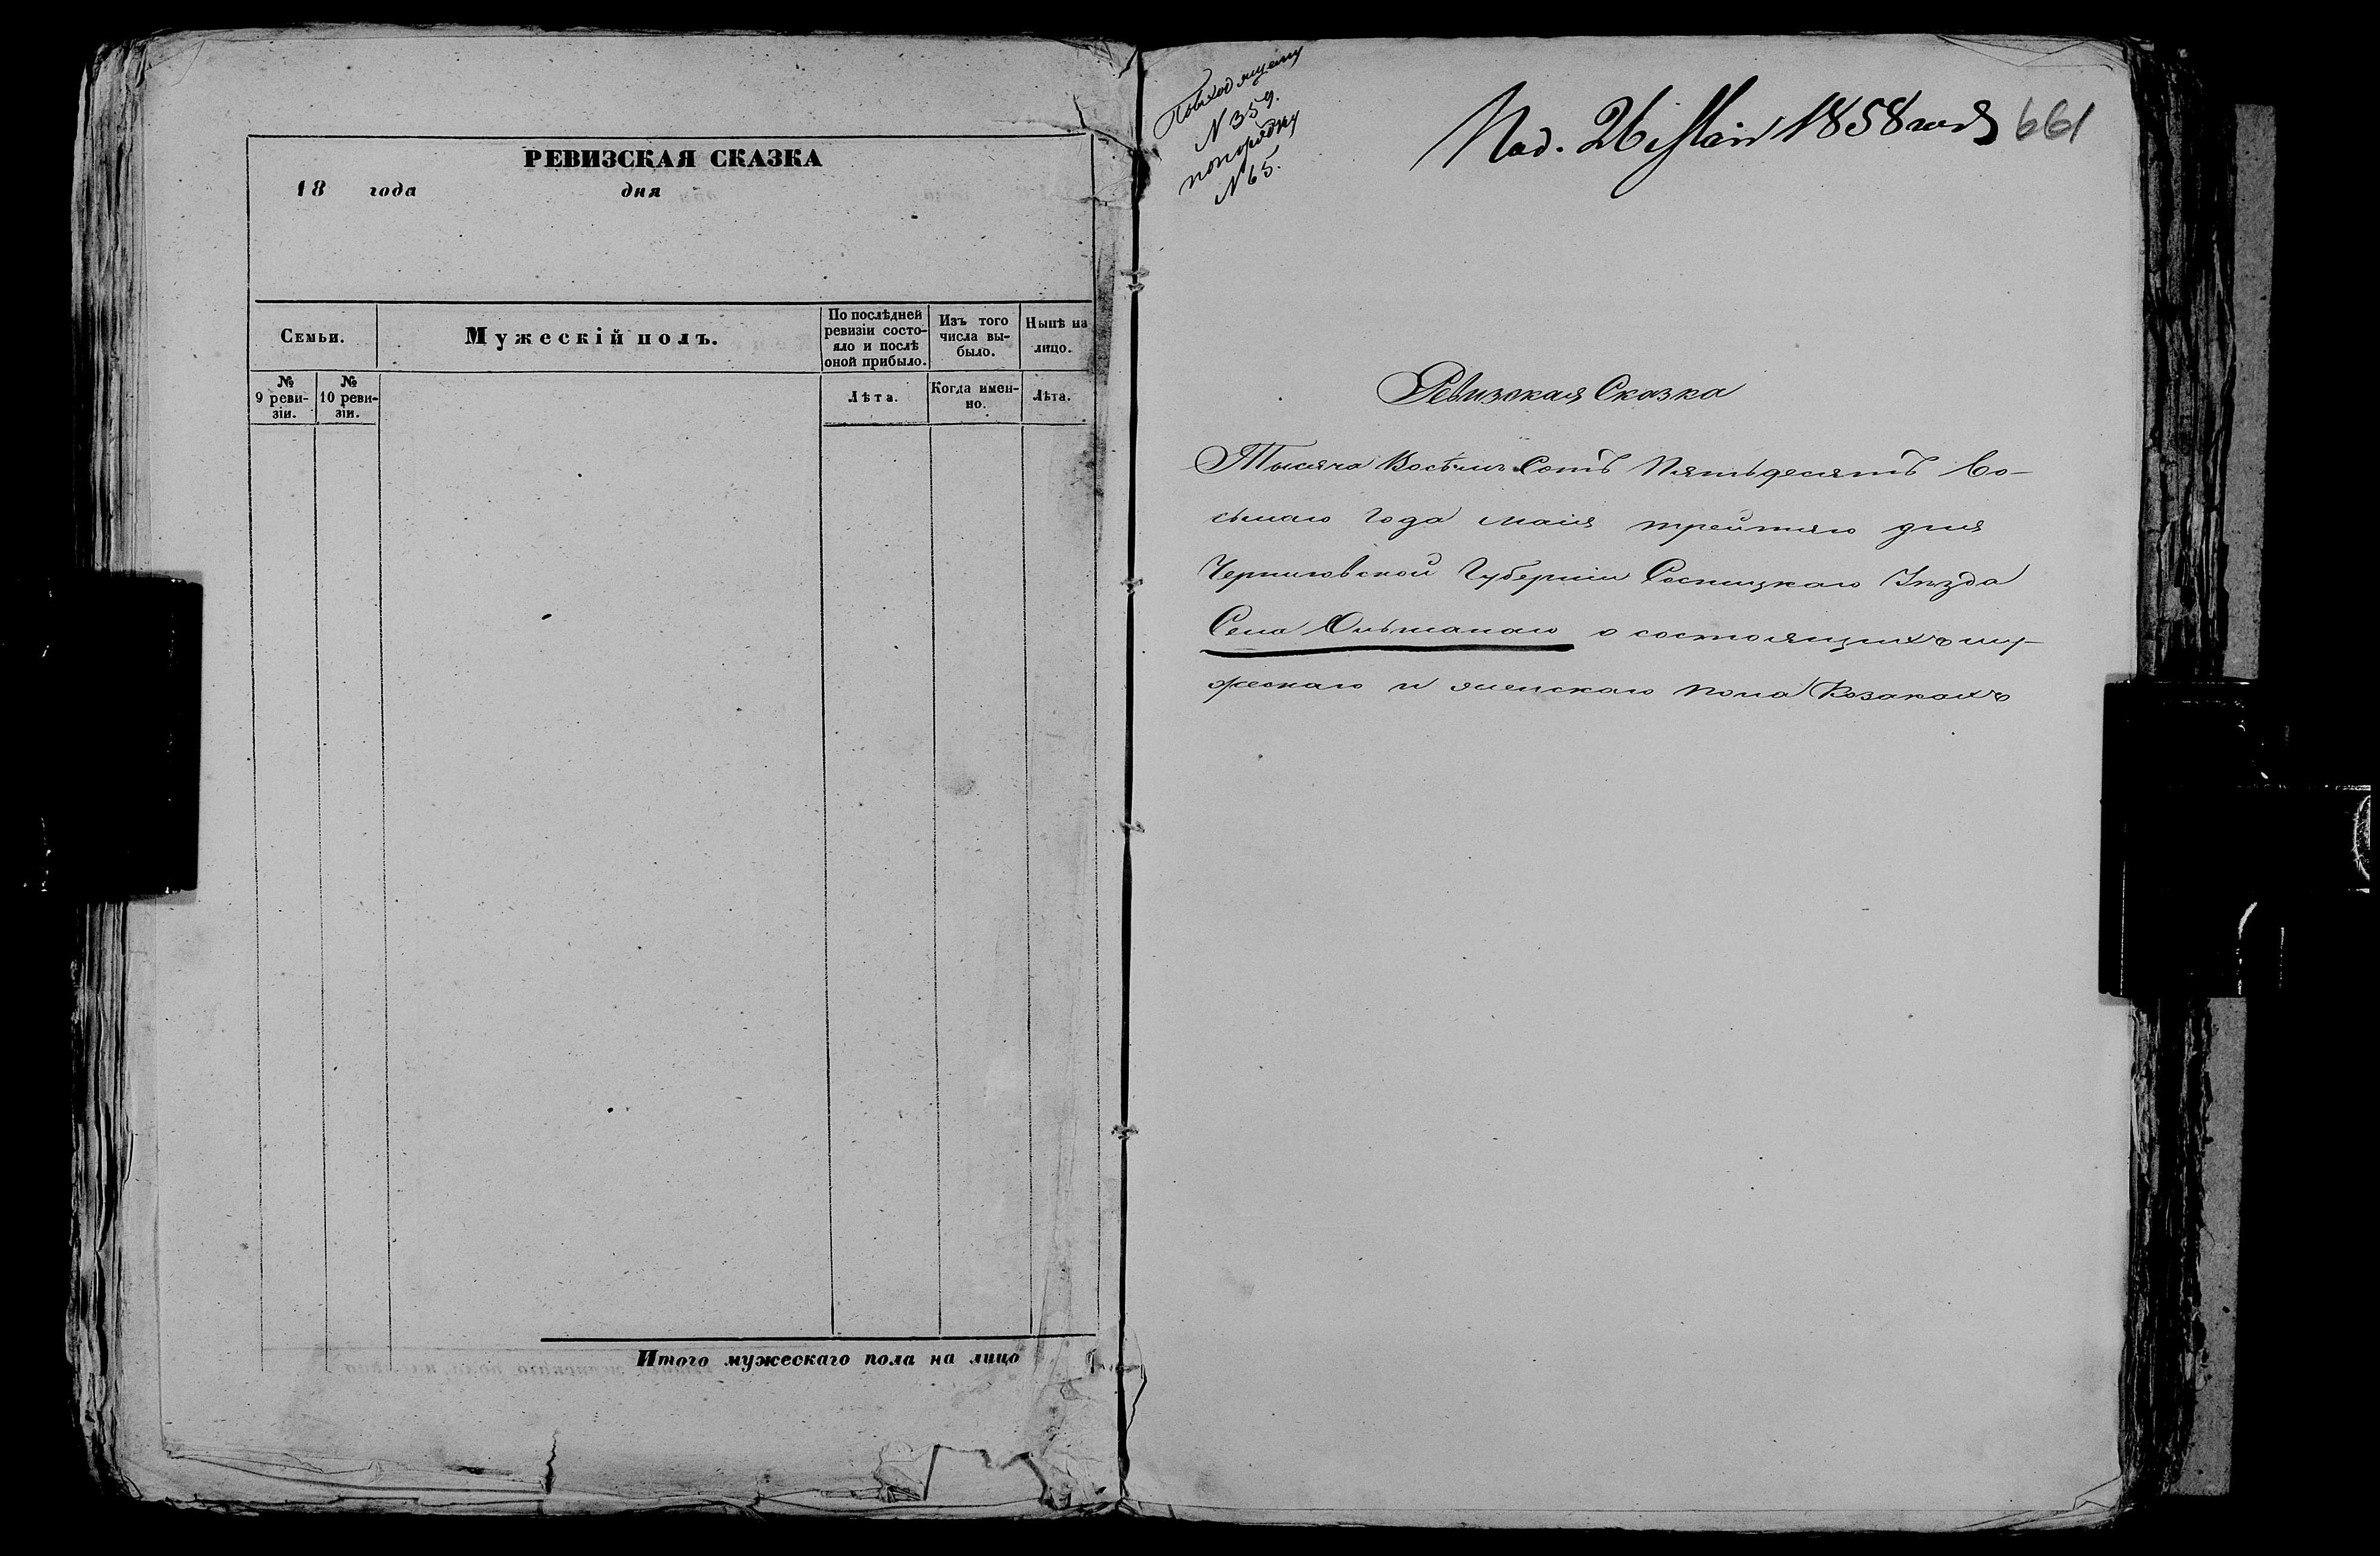 РЕВИЗСКАЯ СКАЗКА
18 года дня
Семьи.
Мужескій полъ.
По послѣдней ревизіи состо-
яло и послѣ
оной прибыло.
Изъ того
числа вы-
было.
Нынѣ на
лицо.
№
9 реви-
зіи.
№
10 реви-
зіи.
Лѣта.
Когда имен-
но.
Лѣта.
Итого мужескаго пола на лицо
Повходящему
N 359.
попорядку
N 65.
Под. 26 Мая 1858 года
661
Ревизская Сказка
Тысяча Восемь Сотъ Пятьдесятъ Во-
сьмаго Года Маія трейтяго дня
Черниговской Губерніи Сосницкаго Уѣзда
Села Ольшанаго о состоящихъ му-
жескаго и женскаго пола Козакахъ